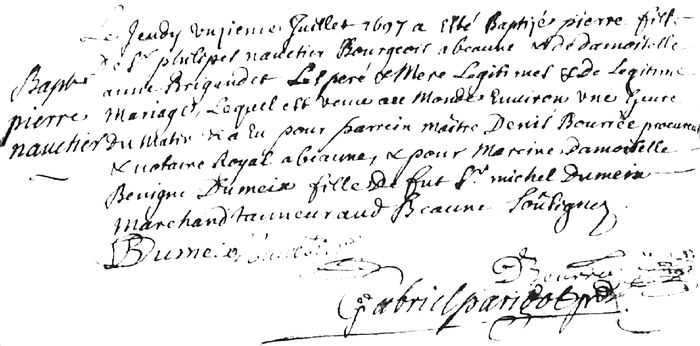 Le Jeudy unzieme Juillet 1697 a Esté Baptizés pierre fils
De Sr. philipes nauctier Bourgeois a beaune & de damoiselle
anne Brigandet Les peré & Mere Legitimes & de Legitime
Mariage, Lequel est venu au Monde Environ une heure
Du Matin & a Eu pour parrein maitre Denis Bourrée procureur
& notaire Royal a beaune, & pour Mareine damoiselle
Benigne Dumeix fille de fut Sr. michel Dumeix
Marchand tanneur aud Beaune Soubsignez
Bapt
pierre
nauctier
BDumeix
Bourrée
Gabriel parigot prb